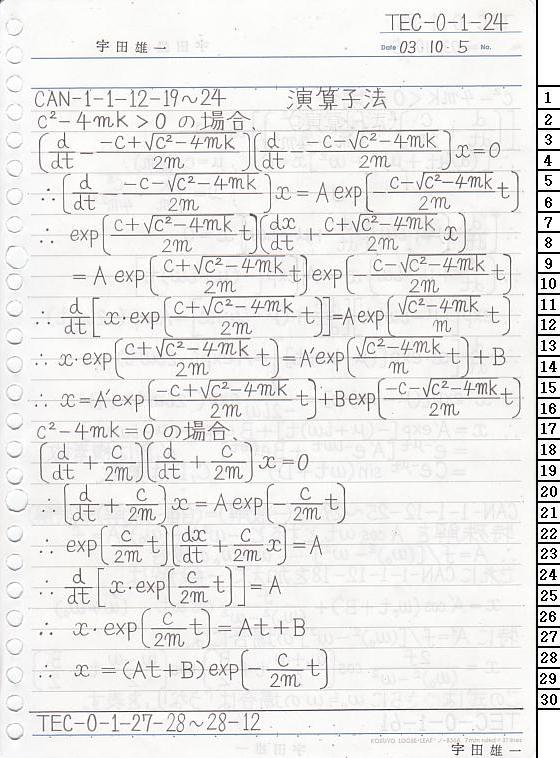 TEC-0-1-24
宇田雄一 Date 03・10・5 No.
CAN-1-1-12-19〜24 演算子法
c²-4mk>0 の場合、
(d/dt - (-c+√(c²-4mk))/2m)(d/dt - (-c-√(c²-4mk))/2m)x=0
∴ (d/dt - (-c-√(c²-4mk))/2m)x = A exp(-(c-√(c²-4mk))/2m t)
∴ exp((c+√(c²-4mk))/2m t)(dx/dt + (c+√(c²-4mk))/2m x)
= A exp((c+√(c²-4mk))/2m t) exp(-(c-√(c²-4mk))/2m t)
∴ d/dt[x·exp((c+√(c²-4mk))/2m t)] = A exp(√(c²-4mk)/m t)
∴ x·exp((c+√(c²-4mk))/2m t) = A′exp(√(c²-4mk)/m t) + B
∴ x = A′exp((-c+√(c²-4mk))/2m t) + B exp((-c-√(c²-4mk))/2m t)
c²-4mk=0 の場合、
(d/dt + c/2m)(d/dt + c/2m)x=0
∴ (d/dt + c/2m)x = A exp(-c/2m t)
∴ exp(c/2m t)(dx/dt + c/2m x) = A
∴ d/dt[x·exp(c/2m t)] = A
∴ x·exp(c/2m t) = At+B
∴ x = (At+B)exp(-c/2m t)
TEC-0-1-27-28〜28-12
KOKUYO LOOSE-LEAF
宇田雄一
1
2
3
4
5
6
7
8
9
10
11
12
13
14
15
16
17
18
19
20
21
22
23
24
25
26
27
28
29
30